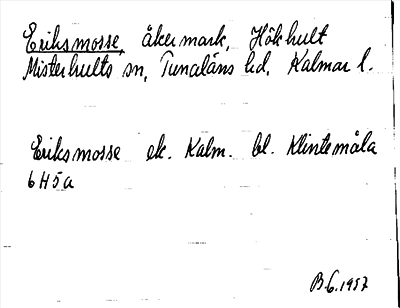 Eriksmosse, åkermark, Hökhult
Misterhults sn, Tunaläns hd, Kalmar l.
Eriksmosse ek. Kalm. bl. Klintemåla
6H5a
B.G. 1957